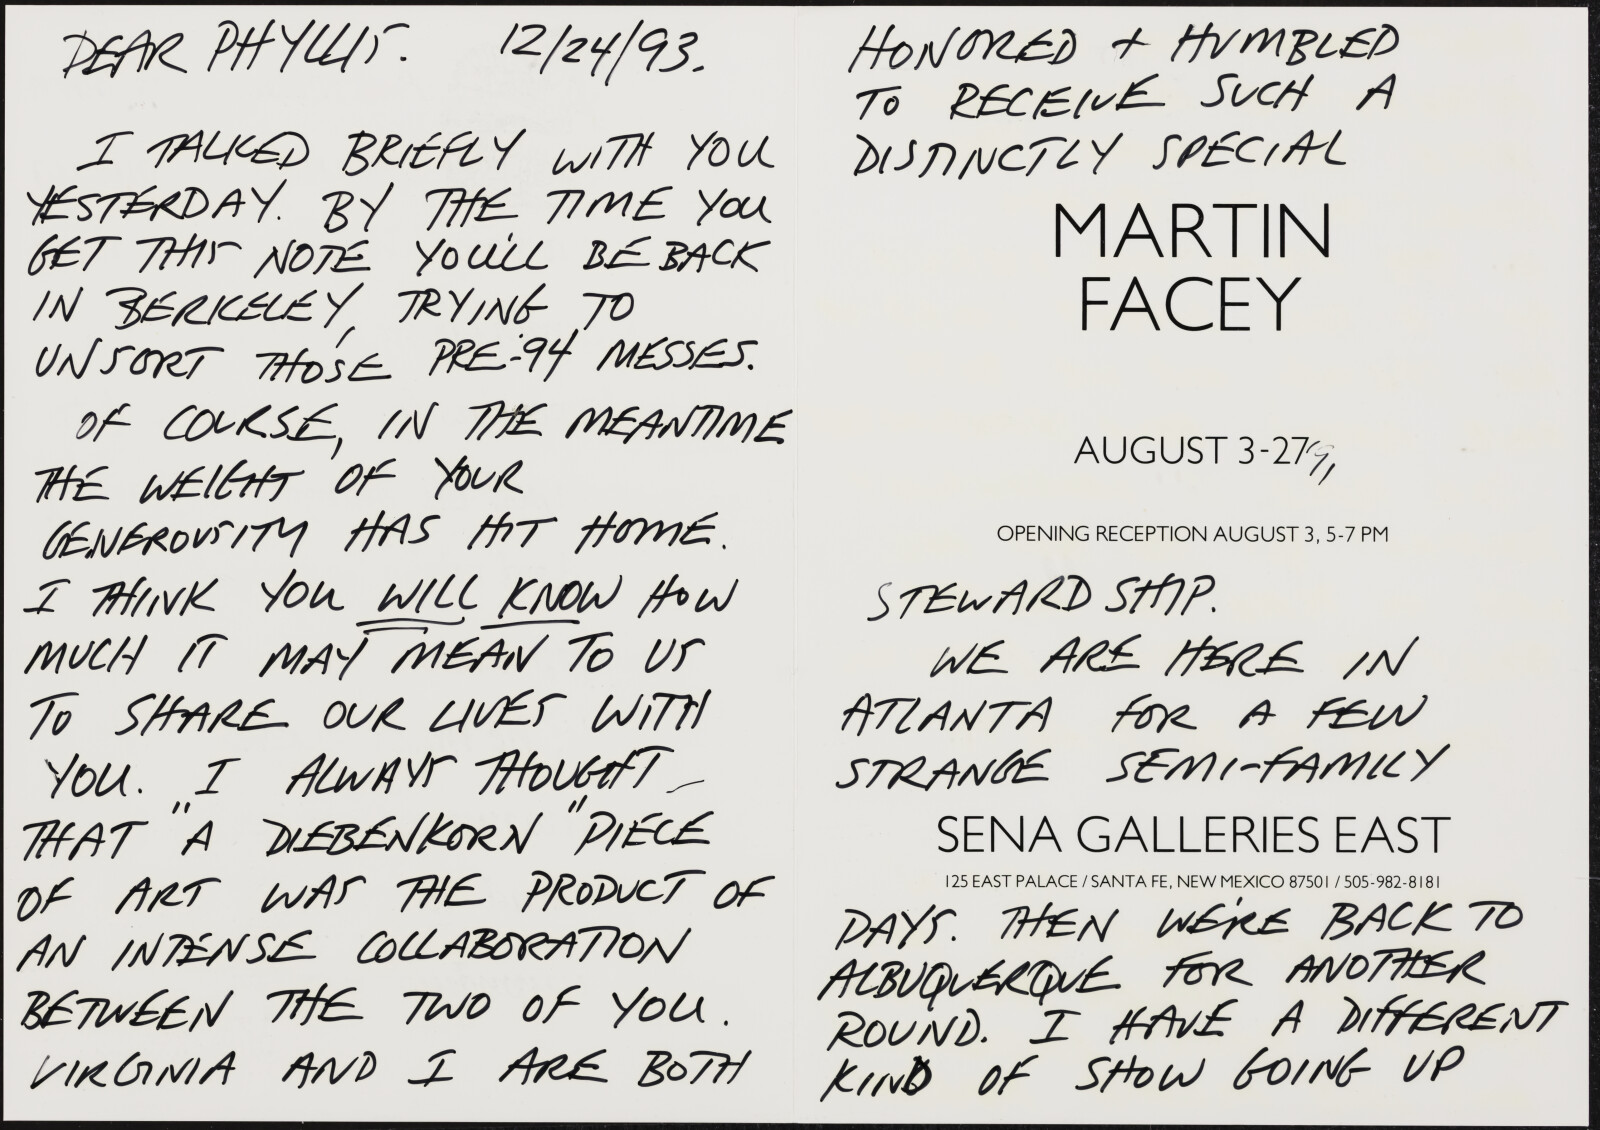 DEAR PHYLLIS. 12/24/93.
I TALKED BRIEFLY WITH YOU
YESTERDAY. BY THE TIME YOU
GET THIS NOTE YOU'LL BE BACK
IN BERKELEY, TRYING TO
UNSORT THOSE PRE-'94 MESSES.
OF COURSE, IN THE MEANTIME
THE WEIGHT OF YOUR
GENEROUSITY HAS HIT HOME.
I THINK YOU WILL KNOW HOW
MUCH IT MAY MEAN TO US
TO SHARE OUR LIVES WITH
YOU. I ALWAYS THOUGHT
THAT "A DIEBENKORN" PIECE
OF ART WAS THE PRODUCT OF
AN INTENSE COLLABORATION
BETWEEN THE TWO OF YOU.
VIRGINIA AND I ARE BOTH
HONORED + HUMBLED
TO RECEIVE SUCH A
DISTINCTLY SPECIAL
MARTIN
FACEY
AUGUST 3-27
OPENING RECEPTION AUGUST 3, 5-7 PM
STEWARDSHIP.
WE ARE HERE IN
ATLANTA FOR A FEW
STRANGE SEMI-FAMILY
SENA GALLERIES EAST
125 EAST PALACE / SANTA FE, NEW MEXICO 87501 / 505-982-8181
DAYS. THEN WE'RE BACK TO
ALBUQUERQUE FOR ANOTHER
ROUND. I HAVE A DIFFERENT
KIND OF SHOW GOING UP